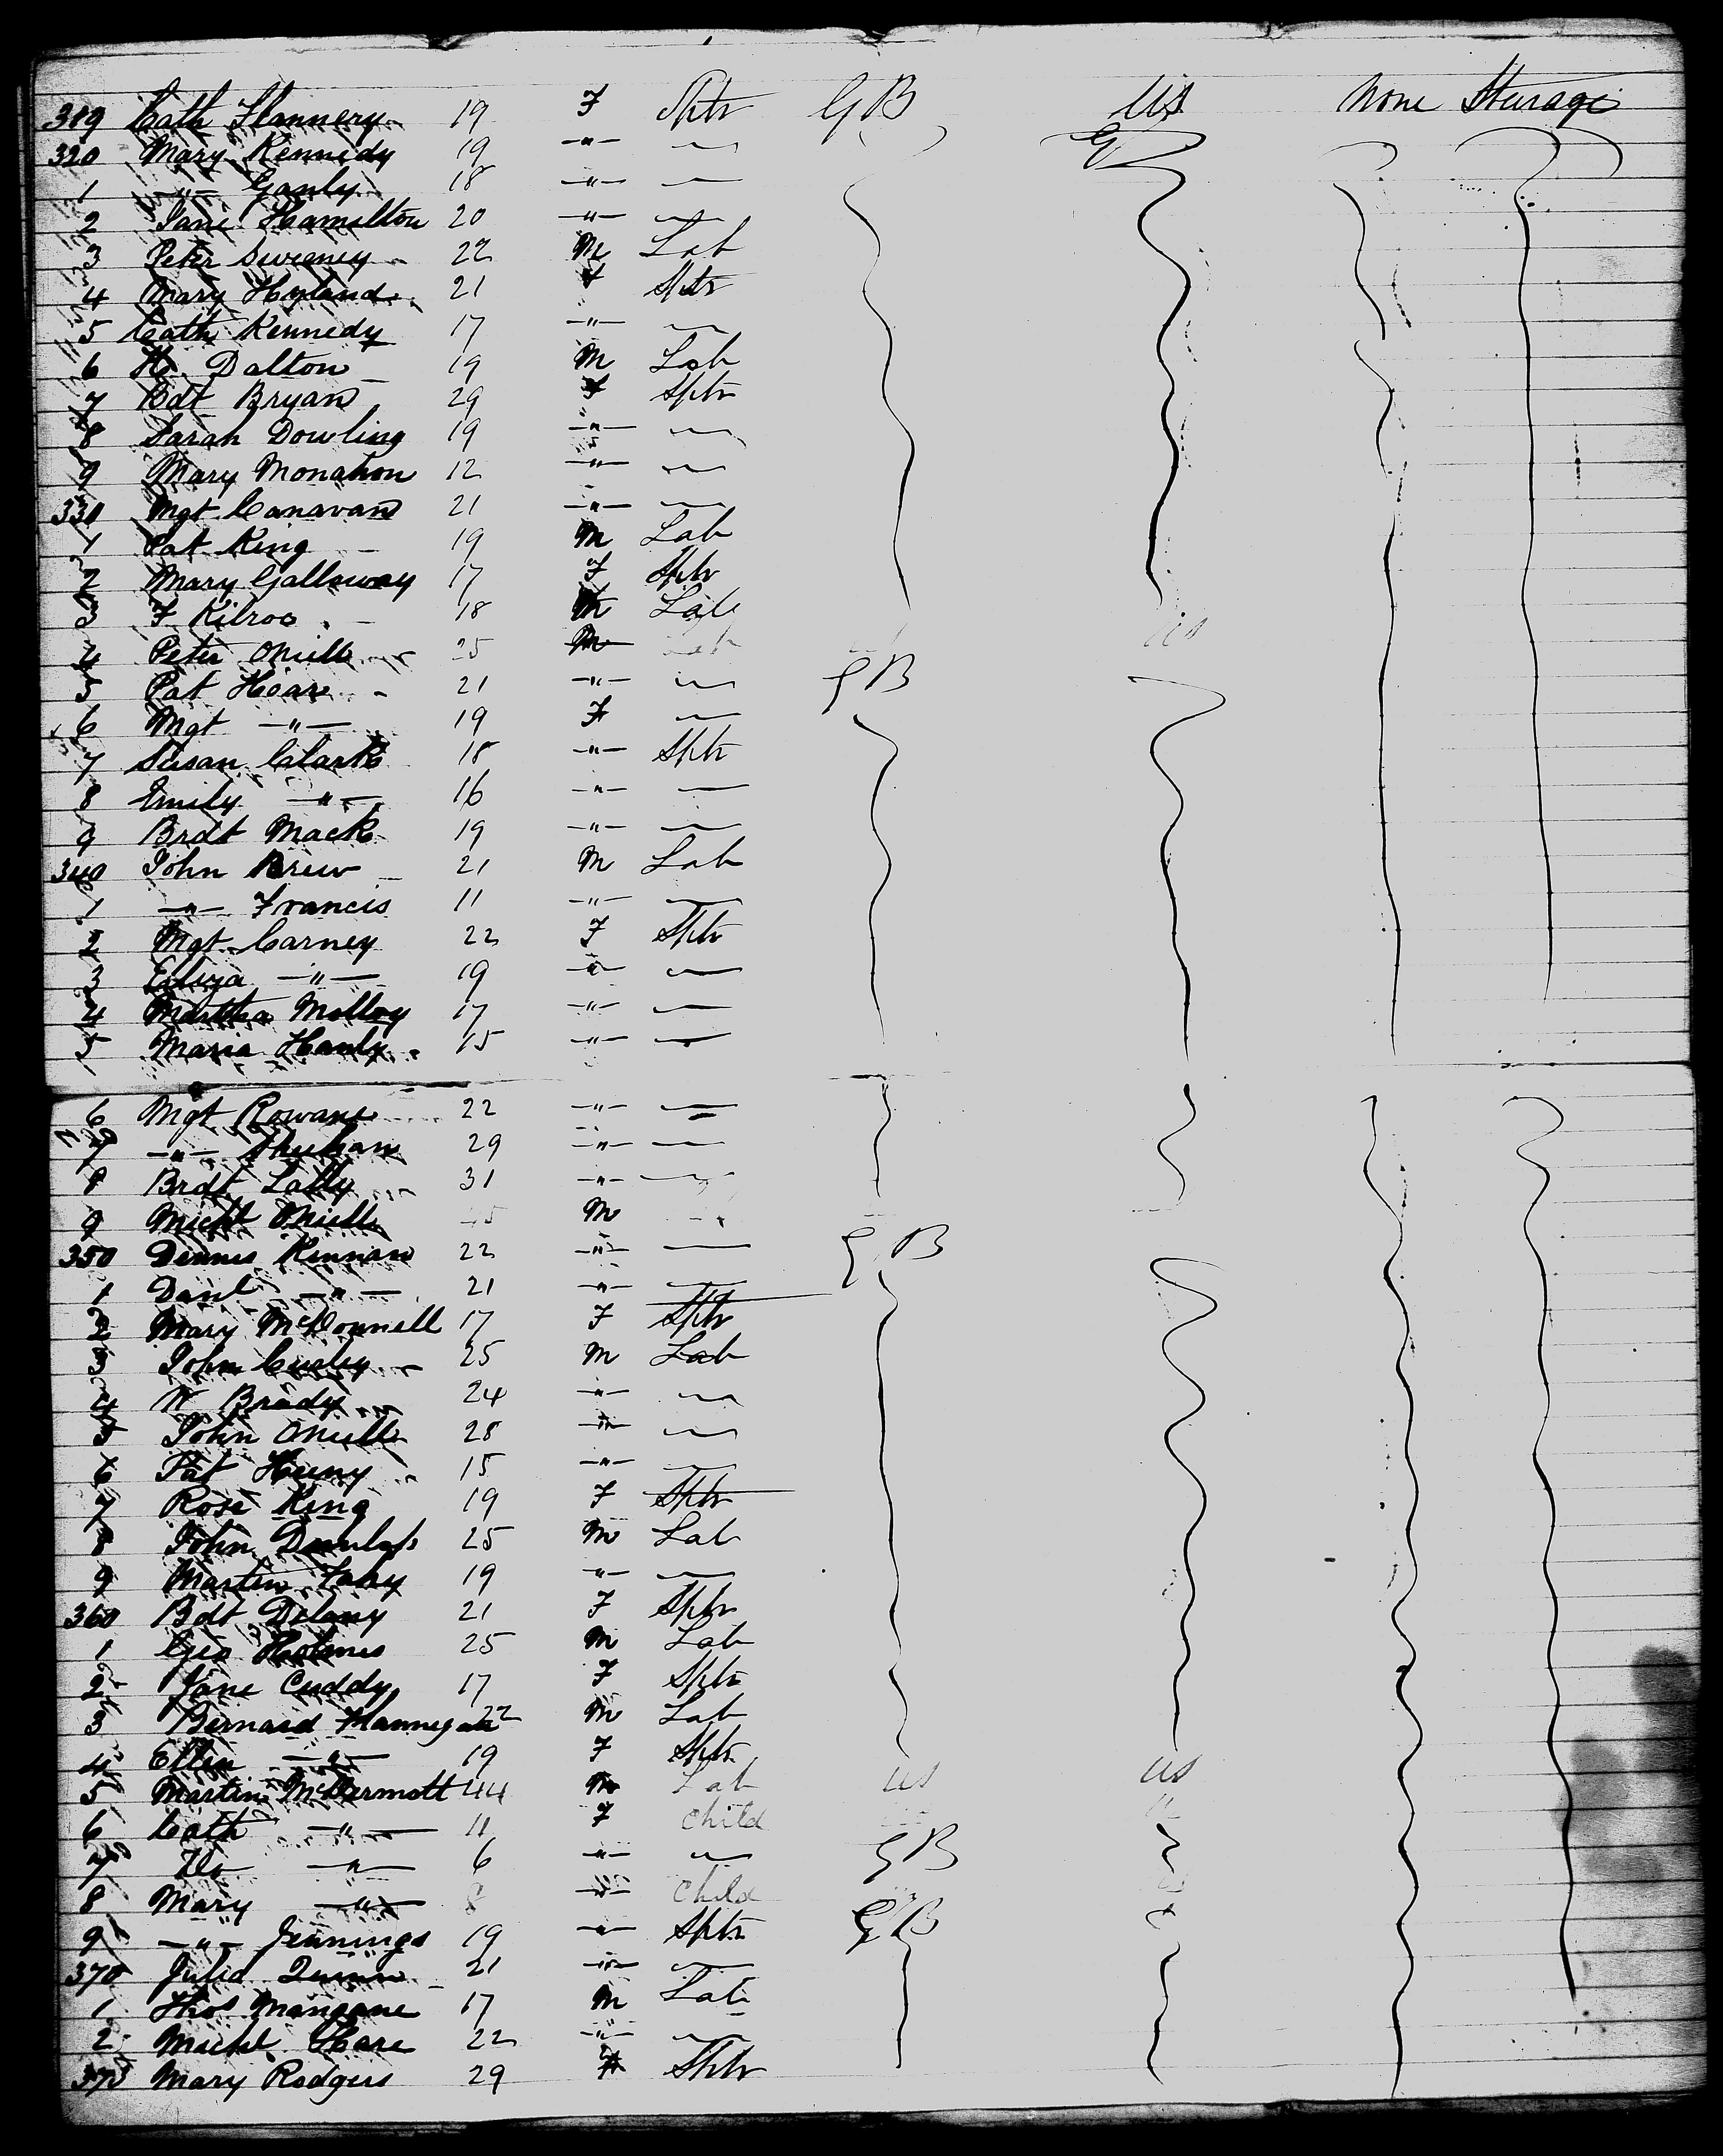 319 Cath Flannery 19 F Sptr GB US None Sturage
320 Mary Kennedy 19 -"- 〃
1 -"- Ganly 18 -"- 〃
2 Jane Hamilton 20 -"- 〃
3 Peter Sweeney 22 M Lab
4 Mary Hyland 21 F Sptr
5 Cath Kennedy 17 -"- 〃
6 Dalton 19 M Lab
7 Bdt Bryan 29 F Sptr
8 Sarah Dowling 19 -"- 〃
9 Mary Monahon 12 -"- 〃
330 Mgt Canavan 21 -"- 〃
1 Pat King 19 M Lab
2 Mary Galloway 17 F Sptr
3 F Kilroe 18 M Lab
4 Peter ONeill 25 M Lab US
5 Pat Hoare 21 -"- 〃 GB
6 Mgt -"- 19 F 〃
7 Susan Clarke 18 -"- Sptr
8 Emily -"- 16 -"- 〃
9 Brdt Mack 19 -"- 〃
340 John Brew 21 M Lab
1 -"- Francis 11 -"- 〃
2 Mgt Carney 22 F Sptr
3 Eliza -"- 19 -"- 〃
4 Martha Molloy 17 -"- 〃
5 Maria Hanly 15 -"- 〃
6 Mgt Rowane 22 -"- 〃
7 -"- Sheehan 29 -"- 〃
8 Brdt Lally 31 -"- 〃
9 Michl ONeill 45 M
350 Dennis Kinnan 22 -"- 〃 GB
1 Danl -"- 21 -"- 〃
2 Mary McDonnell 17 F Sptr
3 John Curley 25 M Lab
4 W Brady 24 -"- 〃
5 John ONeill 28 -"- 〃
6 Pat Heeny 15 -"- 〃
7 Rose King 19 F Sptr
8 John Dunlop 25 M Lab
9 Martin Fahy 19 -"- 〃
360 Bdt Delany 21 F Sptr
1 Geo Holmes 25 M Lab
2 Jane Cuddy 17 F Sptr
3 Bernard Flannegan 22 M Lab
4 Ellen -"- 19 F Sptr
5 Martin McDermott 44 M Lab US US
6 Cath -"- 11 F Child
7 -"- 6 -"- 〃 GB
8 Mary -"- 8 -"- Child
9 -"- Jennings 19 -"- Sptr GB
370 Julia Quinn 21 -"- 〃
1 Thos Mangane 17 M Lab
2 Michl Hare 22 -"- 〃
373 Mary Rodgers 29 F Sptr